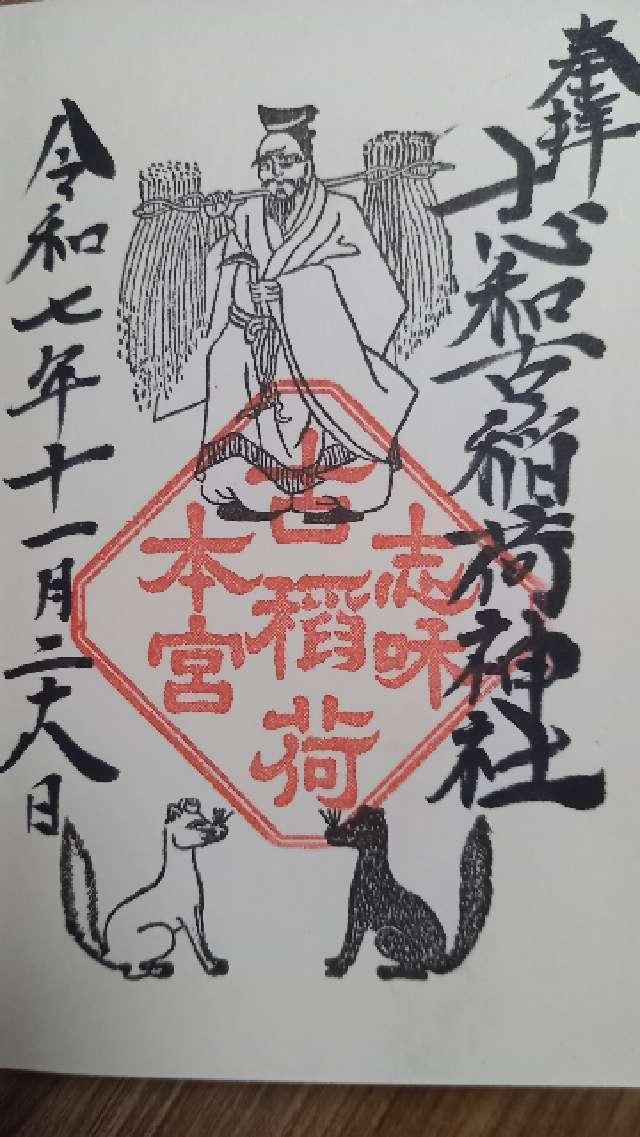 奉拝
志和古稲荷神社
志咊
古稲荷
本宮
令和七年十一月二十八日